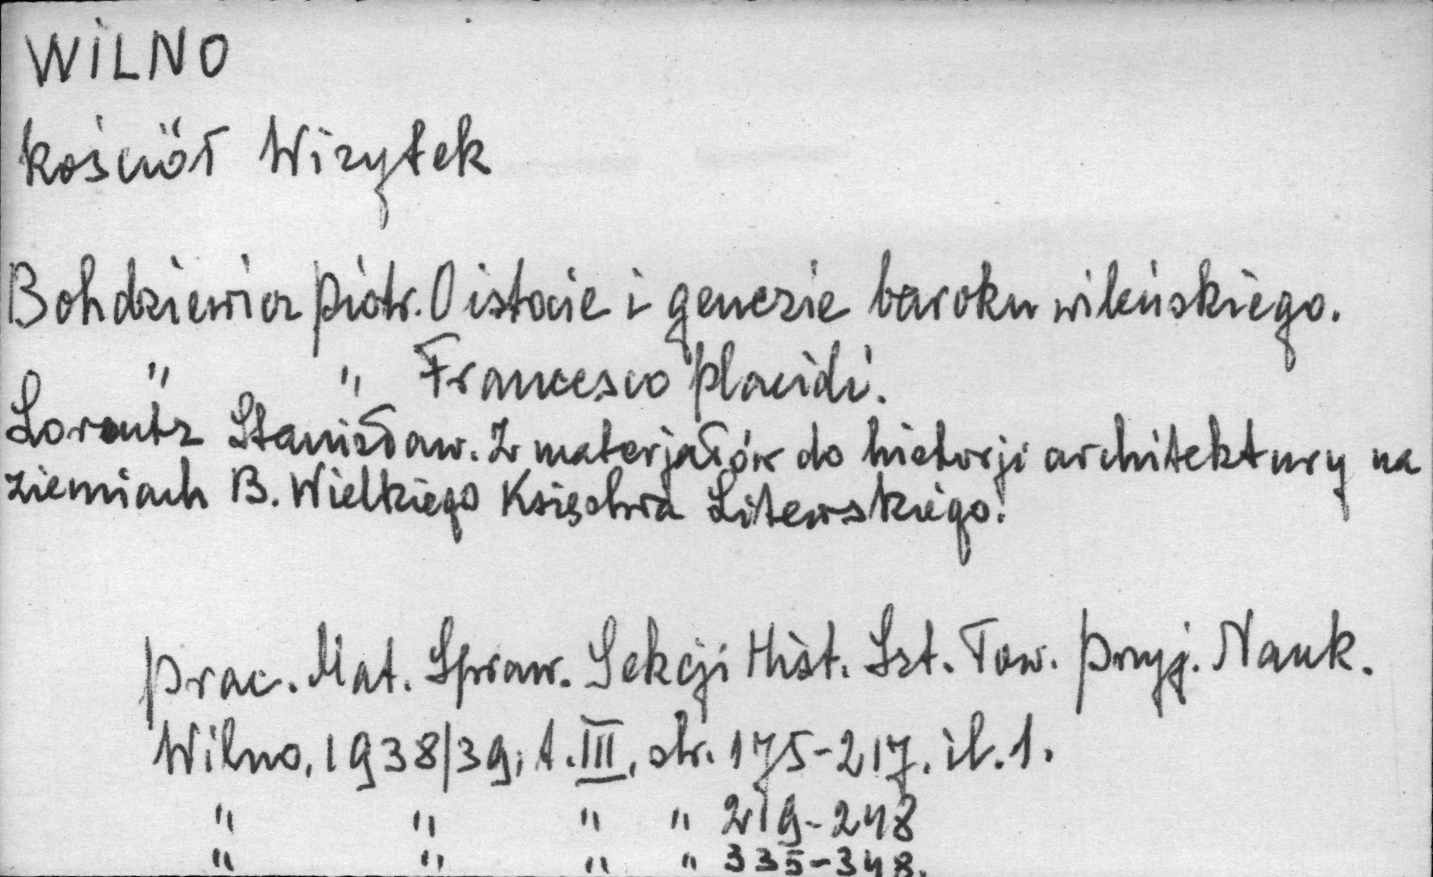 WILNO
kościół Wizytek
Bohdziewicz Piotr. O istocie i genezie baroku wileńskiego.
" " Francesco Placidi.
Lorentz Stanisław. Z materjałów do historji architektury na
ziemiach B. Wielkiego Księstwa Litewskiego.
Prac. Mat. Spraw. Sekcji Hist. Szt. Tow. Przyj. Nauk.
Wilno, 1938/39, t. III, str. 175-217. il. 1.
" " " " 219-248
" " " " 335-348.